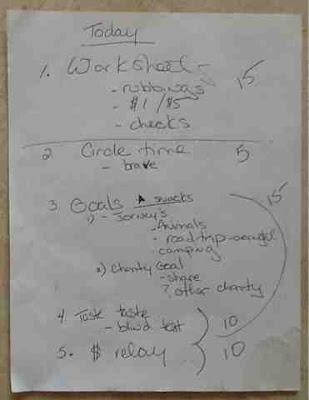 Today
1. Worksheet - 15
- rubbings
- $1/$5
- checks
2 Circle time 5
- brave
3. Goals snacks 15
1)
- Animals
- road trip -
- camping
2) Charity Goal
- share
? other charity
4. Taste taste
- blind test 10
5. $ relay 10